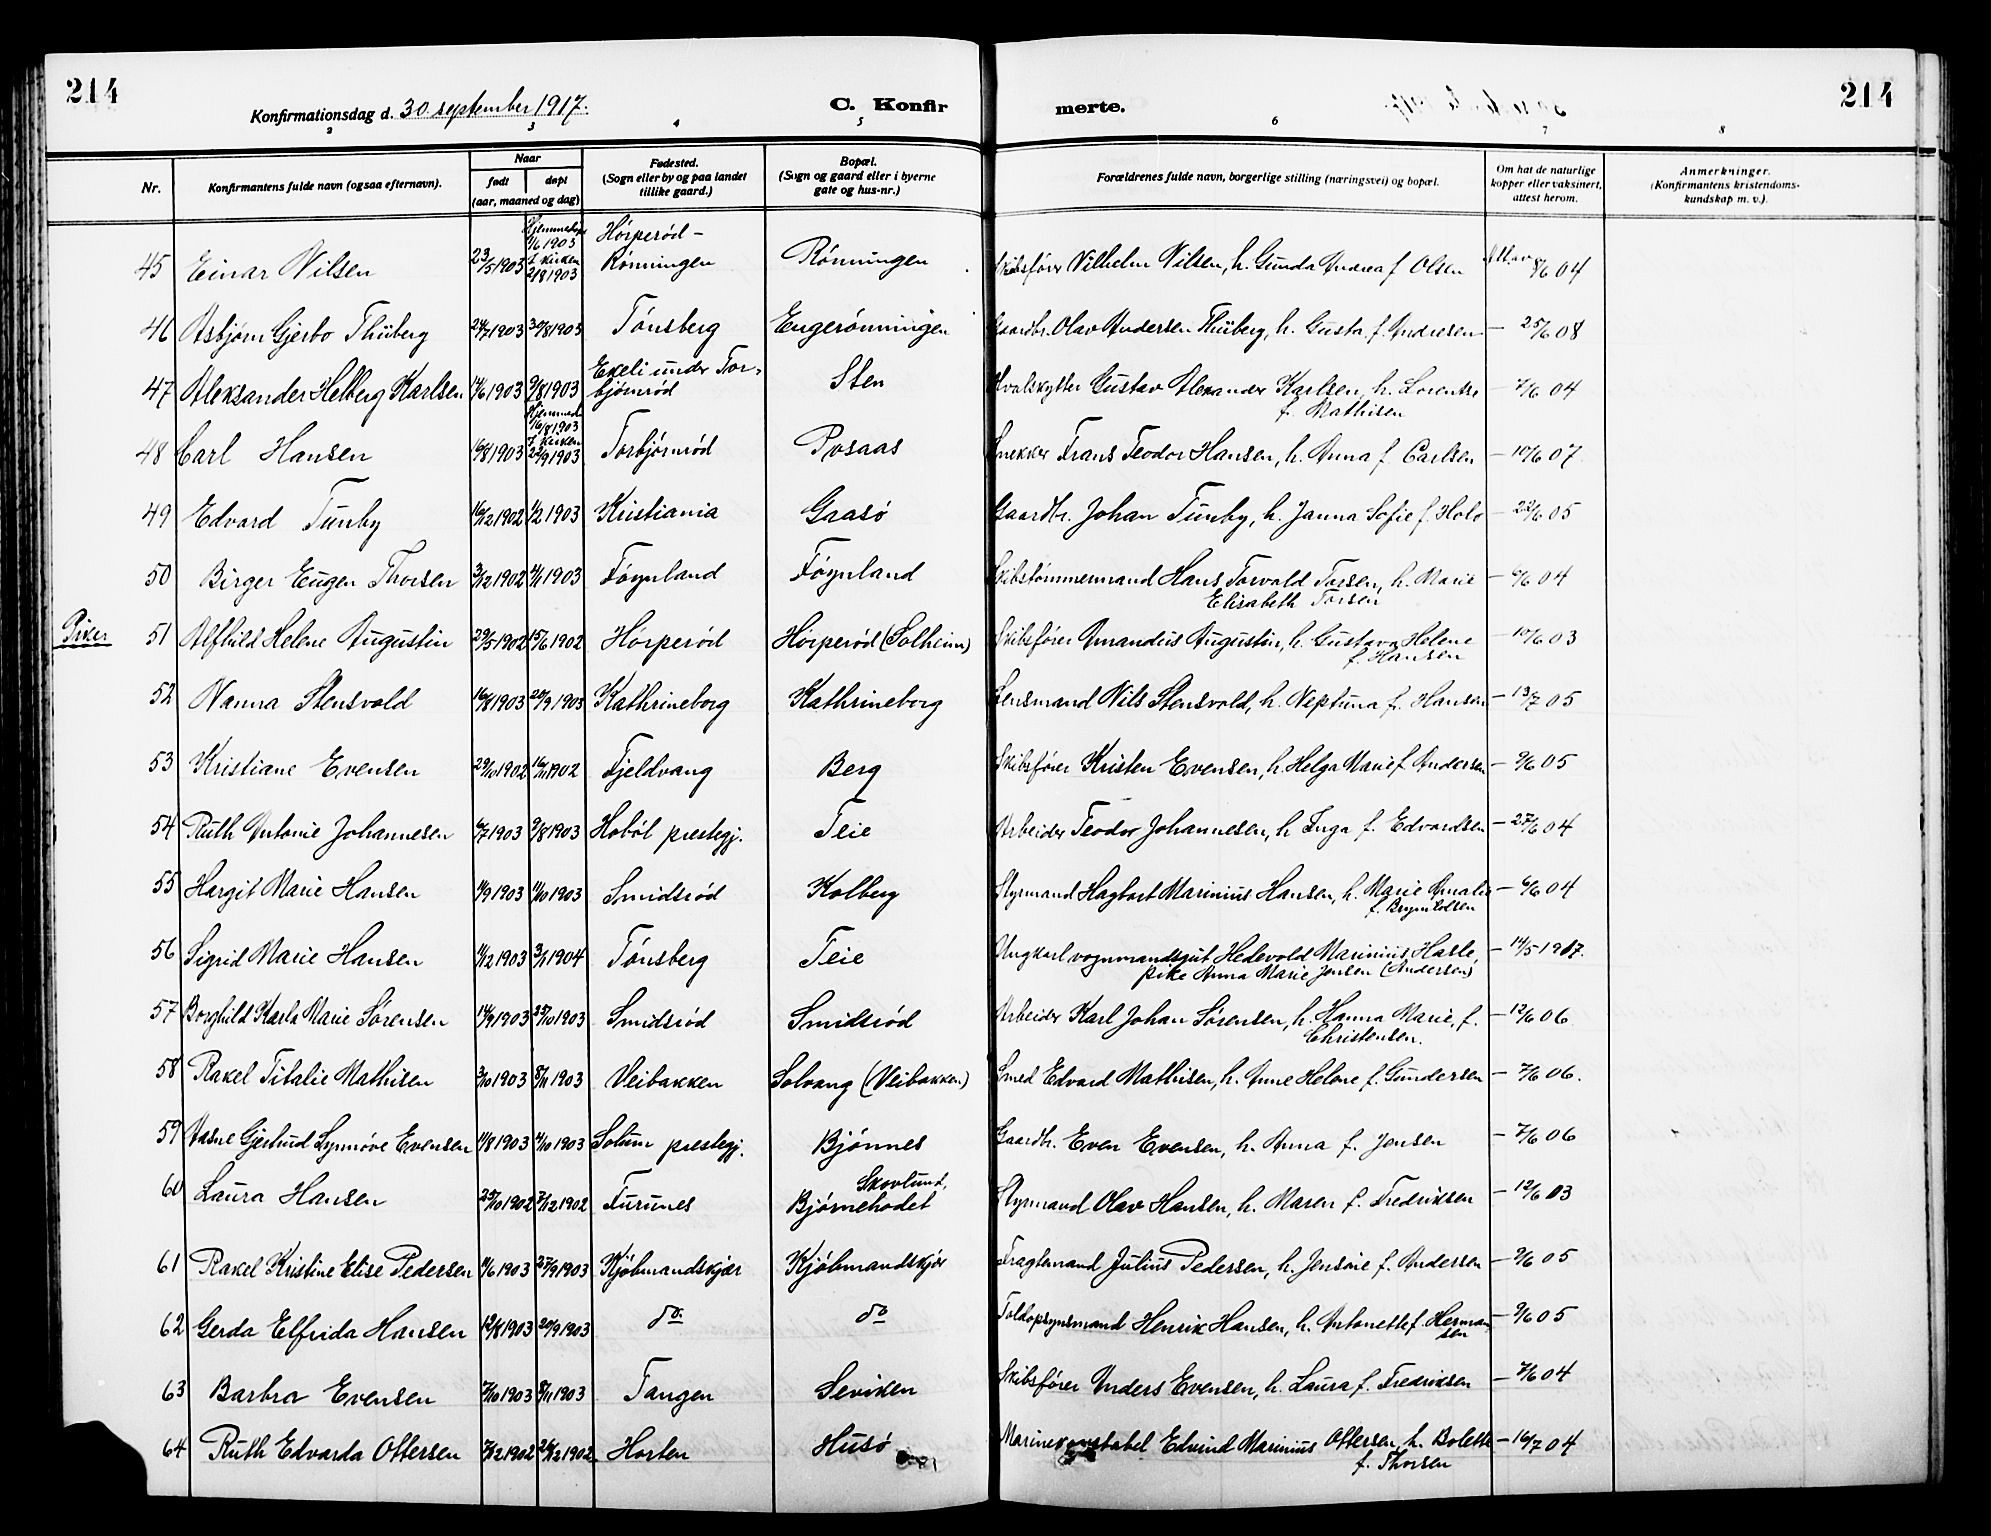 214
Konfirmationsdag d. 30 september 1917.
C. Konfirmerte.
214
2 3 4 5 6 7 8
Nr.
Konfirmantens fulde navn (ogsaa efternavn).
Naar
født
døpt
(aar, maaned og dag)
Fødested.
(Sogn eller by og paa landet
tillike gaard.)
Bopæl.
(Sogn og gaard eller i byerne
gate og hus-nr.)
Forældrenes fulde navn, borgerlige stilling (næringsvei) og bopæl.
Om hat de naturlige
kopper eller vaksinert,
attest herom.
Anmerkninger.
(Konfirmantens kristendoms-
kundskap m. v.).
45 Einar Nilsen 23/5 1903 Hjemmedøpt 1/6 1903 I kirken 2/8 1903 Hørperød - Rønningen Rønningen Skibsfører Vilhelm Nilsen, h. Gunda Andrea f. Olsen Att. av 8/6 04
46 Asbjørn Gjerbo Thüberg 24/7 1903 30/8 1903 Tønsberg Engerønningen Gaardbr. Olav Andersen Thüberg, h. Gusta f. Andresen - 25/6 08
47 Aleksander Helberg Karlsen 14/6 1903 9/8 1903 Ekeli under Torbjørnrød Sten Hvalskytter Gustav Alexander Karlsen, h. Lorentse f. Mathisen - 7/6 04
48 Carl Hansen 16/8 1903 Hjemmed. 16/8 1903 I kirken 22/9 1903 Torbjørnrød Rosaas Snekker Frans Teodor Hansen, h. Anna f. Carlsen - 10/6 07
49 Edvard Tunby 16/12 1902 1/2 1903 Kristiania Gaasø Gaardbr. Johan Tunby, h. Janna Sofie f. Holo - 22/6 05
50 Birger Eugen Thorsen 3/12 1902 4/1 1903 Føynland Føynland Skibstømmermand Hans Torvald Torsen, h. Marie Elisabeth Torsen - 6/6 04
Piker
51 Alfhild Helene Augustin 29/5 1902 15/6 1902 Hørperød Hørperød (Solheim) Skibsfører Amandus Augustin, h. Gustava Helene f. Hansen - 10/6 03
52 Nanna Stensvold 16/8 1903 20/9 1903 Kathrineborg Kathrineborg Lensmand Nils Stensvold, h. Neptuna f. Hansen - 13/7 05
53 Kristiane Evensen 29/10 1902 16/11 1902 Fjeldvang Berg Skibsfører Kristen Evensen, h. Helga Marie f. Andersen - 9/6 05
54 Ruth Antonie Johannesen 6/7 1903 9/8 1903 Hobøl prestegj. Teie Arbeider Teodor Johannesen, h. Inga f. Edvardsen - 27/6 04
55 Hargit Marie Hansen 1/9 1903 11/10 1903 Smidsrød Kolberg Styrmand Hagbart Marinius Hansen, h. Marie Amalie f. Brynildsen - 6/6 04
56 Sigrid Marie Hansen 11/12 1903 3/1 1904 Tønsberg Teie Ungkarl vognmandsgut Hedevold Marinius Hasle, pike Anna Marie Jensen (Andersen) - 14/5 1917.
57 Borghild Karla Marie Sørensen 14/9 1903 25/10 1903 Smidsrød Smidsrød Arbeider Karl Johan Sørensen, h. Hanna Marie, f. Christensen. - 12/6 06
58 Rakel Titalie Mathisen 3/10 1903 8/11 1903 Veibakken Solvang (Veibakken) Smed Edvard Mathisen, h. Anne Helene f. Gundersen - 7/6 06.
59 Aasne Gjertrud Synnøve Evensen 11/8 1903 4/10 1903 Solum prestegj. Bjønnes Gaardbr. Even Evensen, h. Anna f. Jensen - 7/6 06
60 Laura Hansen 25/10 1902 7/12 1902 Furunes Skovlund, Bjørnehodet Styrmand Olav Hansen, h. Maren f. Fredriksen - 12/6 03
61 Rakel Kristine Elise Pedersen 11/6 1903 27/9 1903 Kjøbmandskjær Kjøbmandskjær Fragtemand Julius Pedersen, h. Jensine f. Andersen - 9/6 05
62 Gerda Elfrida Hansen 12/8 1903 20/9 1903 do. do Toldopsynsmand Henrik Hansen, h. Antonette f. Hermansen - 9/6 05
63 Barbra Evensen 7/10 1903 8/11 1903 Tangen Seviken Skibsfører Anders Evensen, h. Laura f. Fredriksen - 7/6 04
64 Ruth Edvarda Ottersen 7/12 1902 26/12 1902 Horten Husø Marinekonstabel Edvind Marinius Ottersen, h. Bolette f. Thorsen - 16/7 04